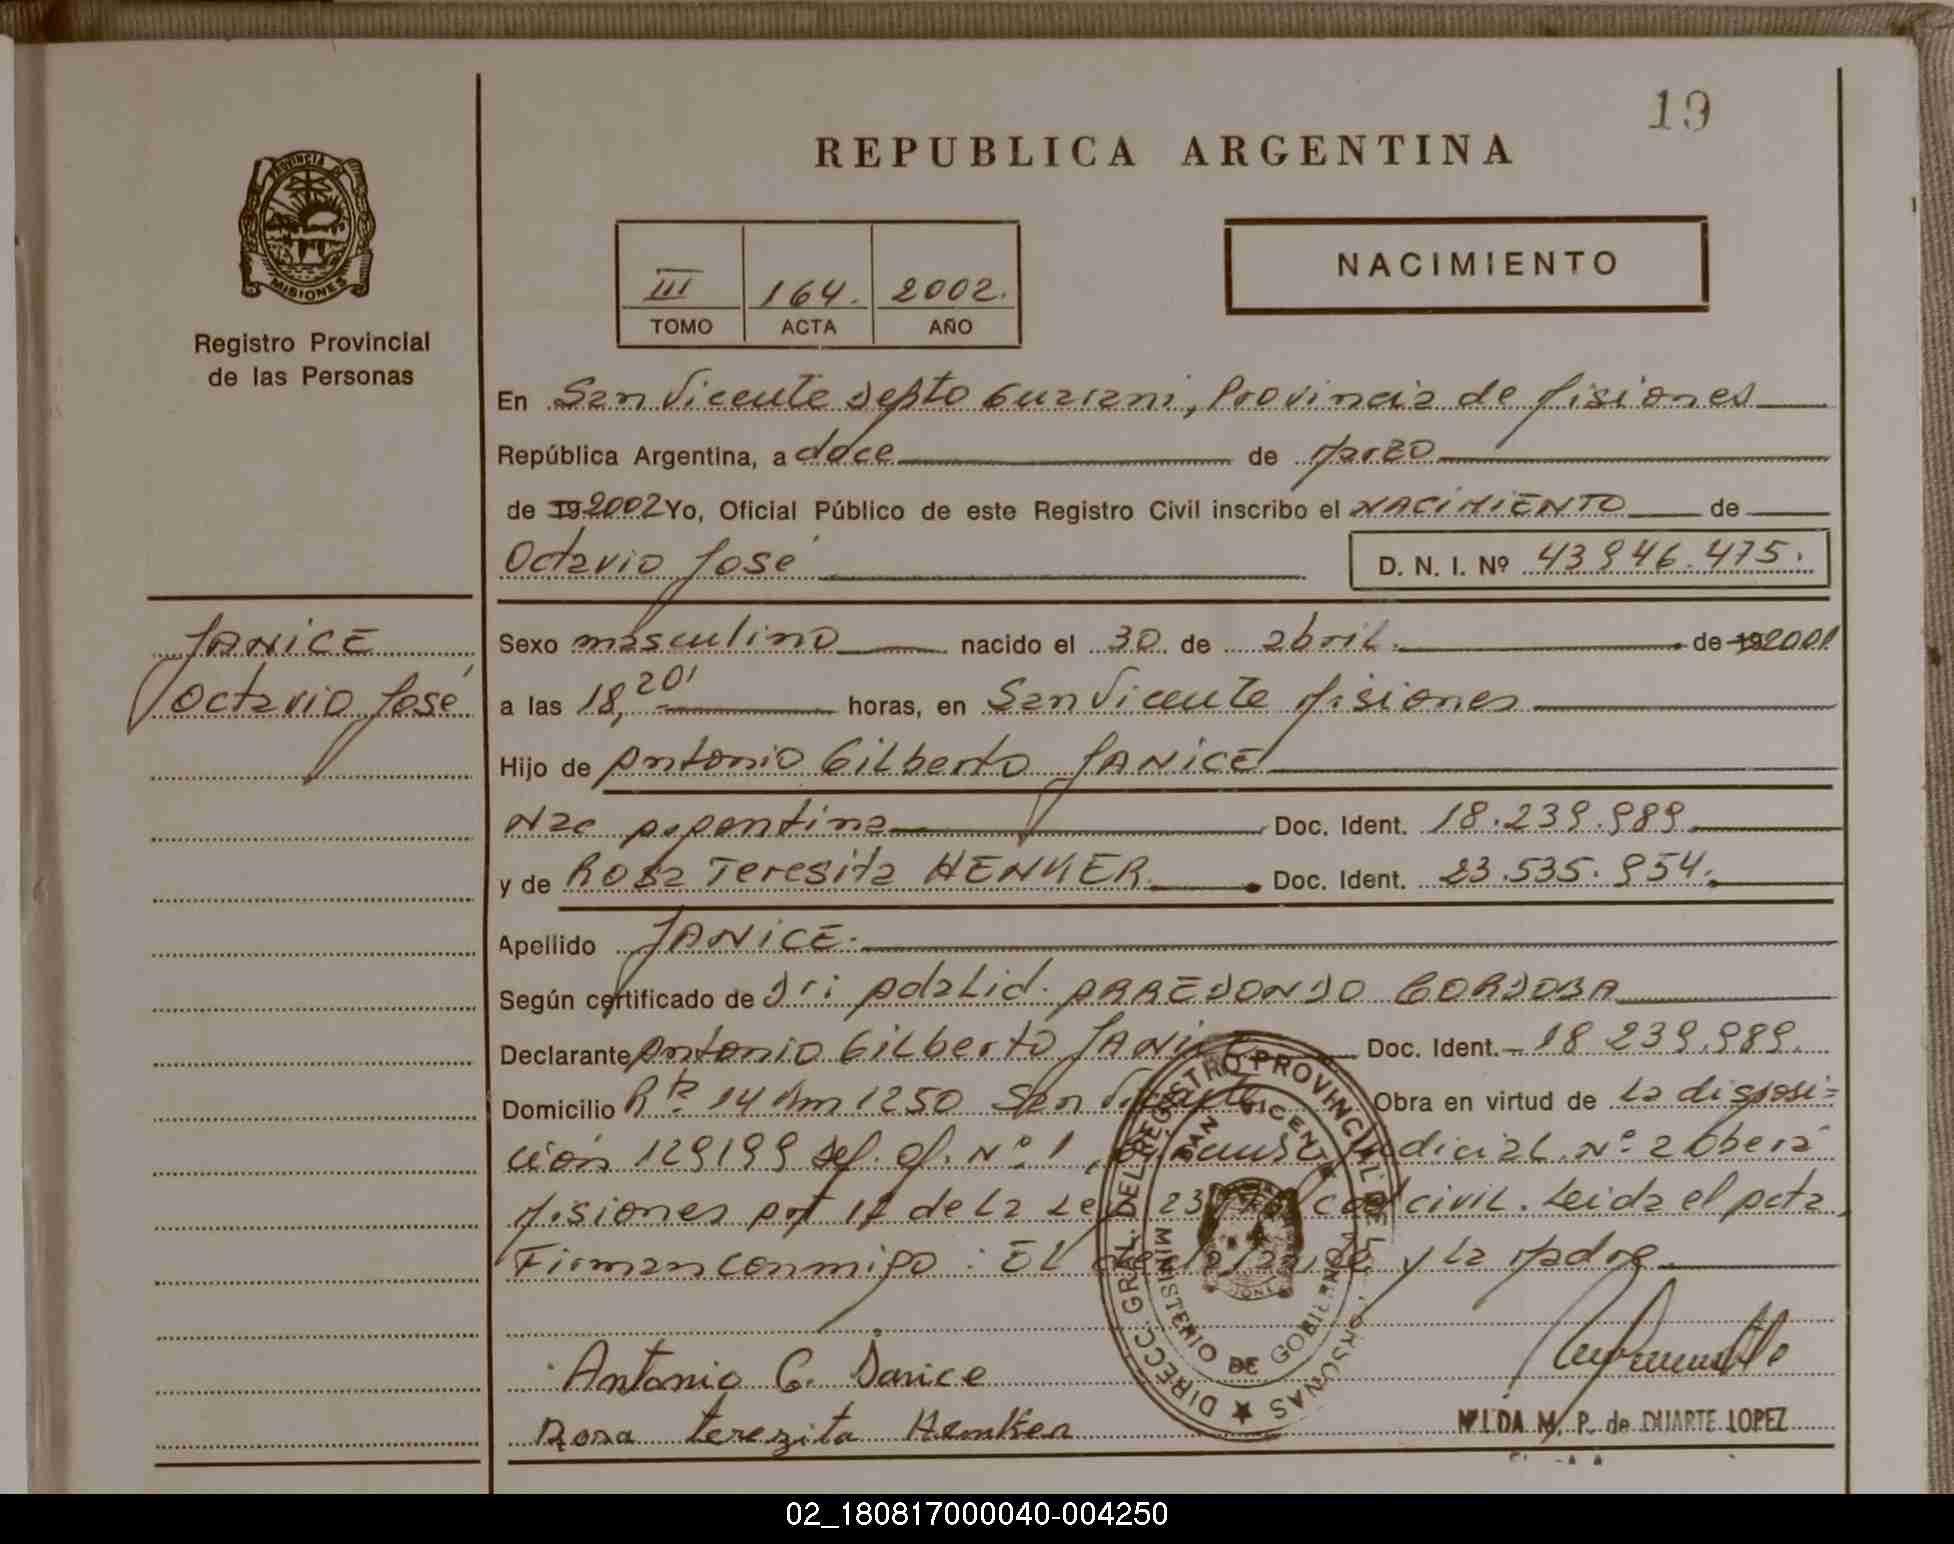 19
REPUBLICA ARGENTINA
PROVINCIA DE
MISIONES
Registro Provincial
de las Personas
III 164. 2002.
TOMO ACTA AÑO
NACIMIENTO
En San Vicente Depto Guarani, Provincia de Misiones
República Argentina, a doce de Marzo
de 19 2002 Yo, Oficial Público de este Registro Civil inscribo el NACIMIENTO de
Octavio José D. N. I. Nº 43946.475.
JANICE
Octavio José
Sexo masculino nacido el 30 de abril. de 19 2001
a las 18,20' horas, en San Vicente Misiones
Hijo de Antonio Gilberto JANICE
Nac Argentina Doc. Ident. 18.239.989
y de Rosa Teresita HENKER Doc. Ident. 23.535.954.
Apellido JANICE.
Según certificado de Dr: Adalid. ARREDONDO CORDOBA
Declarante Antonio Gilberto JANICE Doc. Ident. 18 239.989.
Domicilio Rta 14 Km 1250 San Vicente Obra en virtud de la disposi=
ción 129199 def. of. Nº 1, Judicial Nº 2 Oberá
Misiones Art 12 de la Ley 23 civil. Leida el Acta,
Firman conmigo: El declarante y la Madre.
DIRECC. GRAL. DEL REGISTRO PROVINCIAL DE LAS PERSONAS
SAN VICENTE
MINISTERIO DE GOBIERNO
Antonio G. Janice
Rosa terezita Hemker
NILDA M. P. de DUARTE LOPEZ
02_180817000040-004250